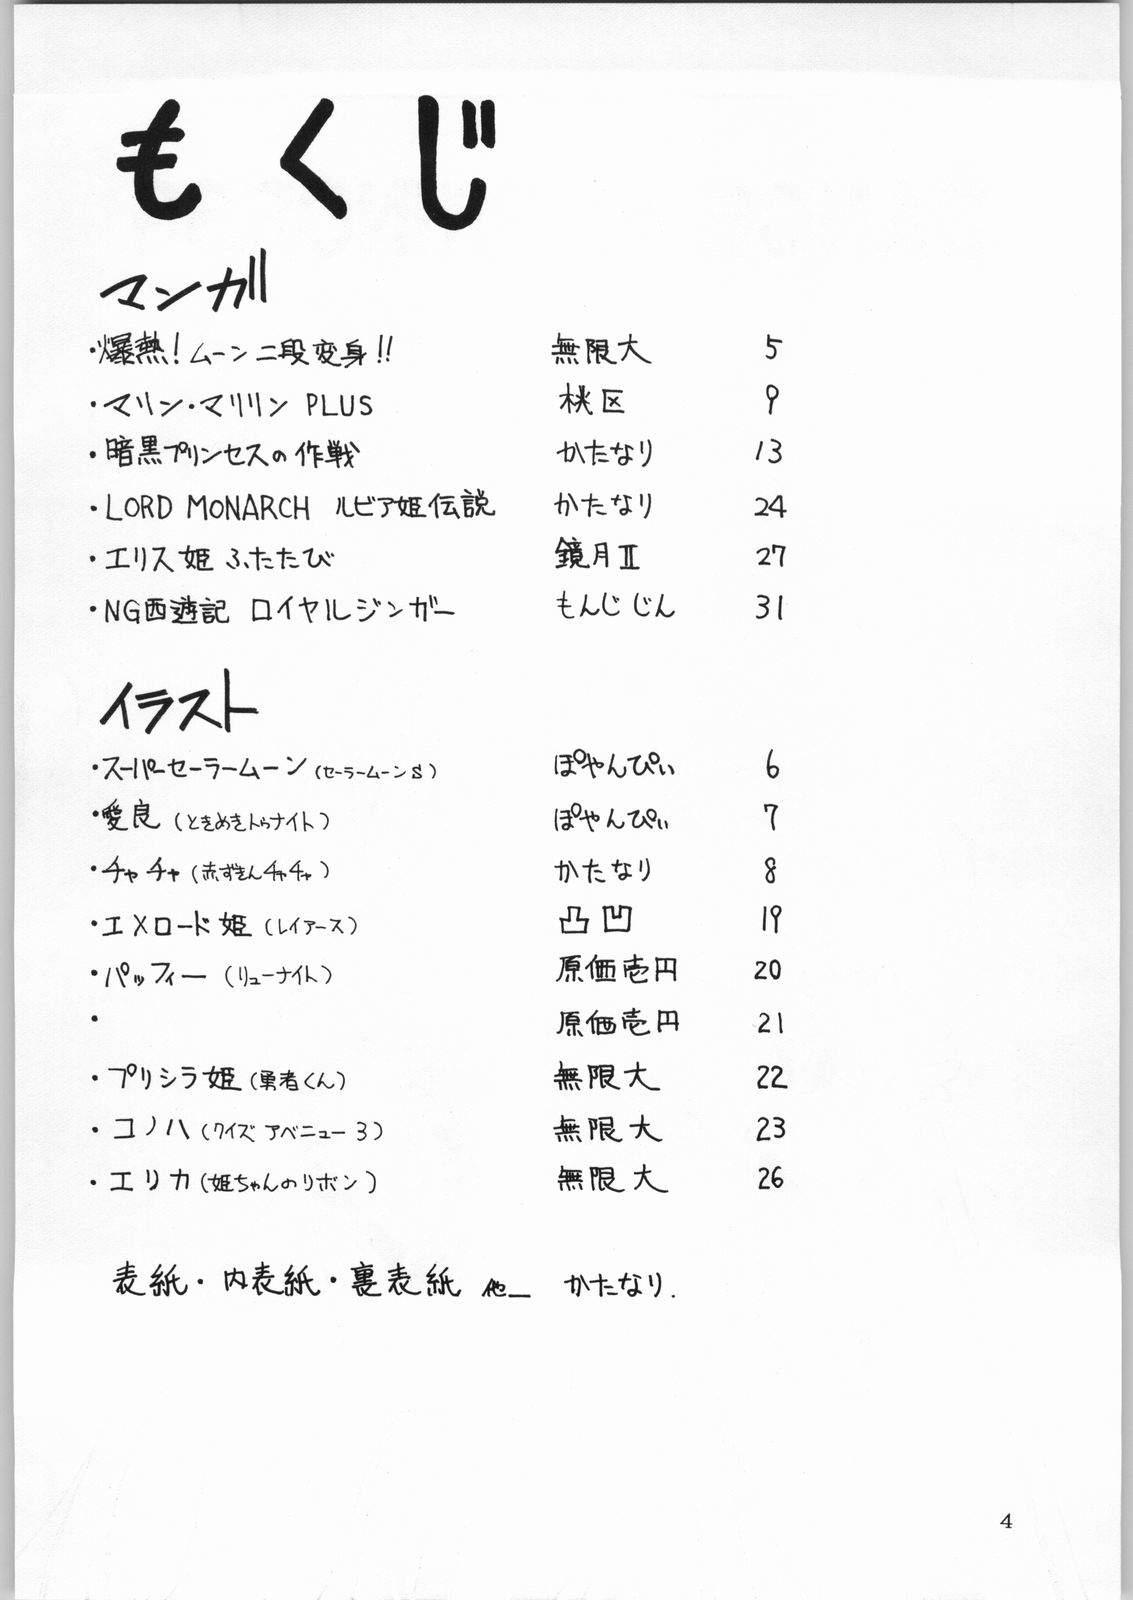 もくじ
マンガ
・爆熱!ムーン二段変身!! 無限大 5
・マリン・マリリン PLUS 桃区 9
・暗黒プリンセスの作戦 かたなり 13
・LORD MONARCH ルビア姫伝説 かたなり 24
・エリス姫 ふたたび 鏡月Ⅱ 27
・NG西遊記 ロイヤルジンガー もんじ じん 31
イラスト
・スーパーセーラームーン(セーラームーンS) ぽやんぴぃ 6
・愛良(ときめきトゥナイト) ぽやんぴぃ 7
・チャチャ(赤ずきんチャチャ) かたなり 8
・エメロード姫(レイアース) 凸凹 19
・パッフィー(リューナイト) 原価壱円 20
・ 原価壱円 21
・プリシラ姫(勇者くん) 無限大 22
・コノハ(クイズ アベニュー3) 無限大 23
・エリカ(姫ちゃんのリボン) 無限大 26
表紙・内表紙・裏表紙 他 かたなり.
4